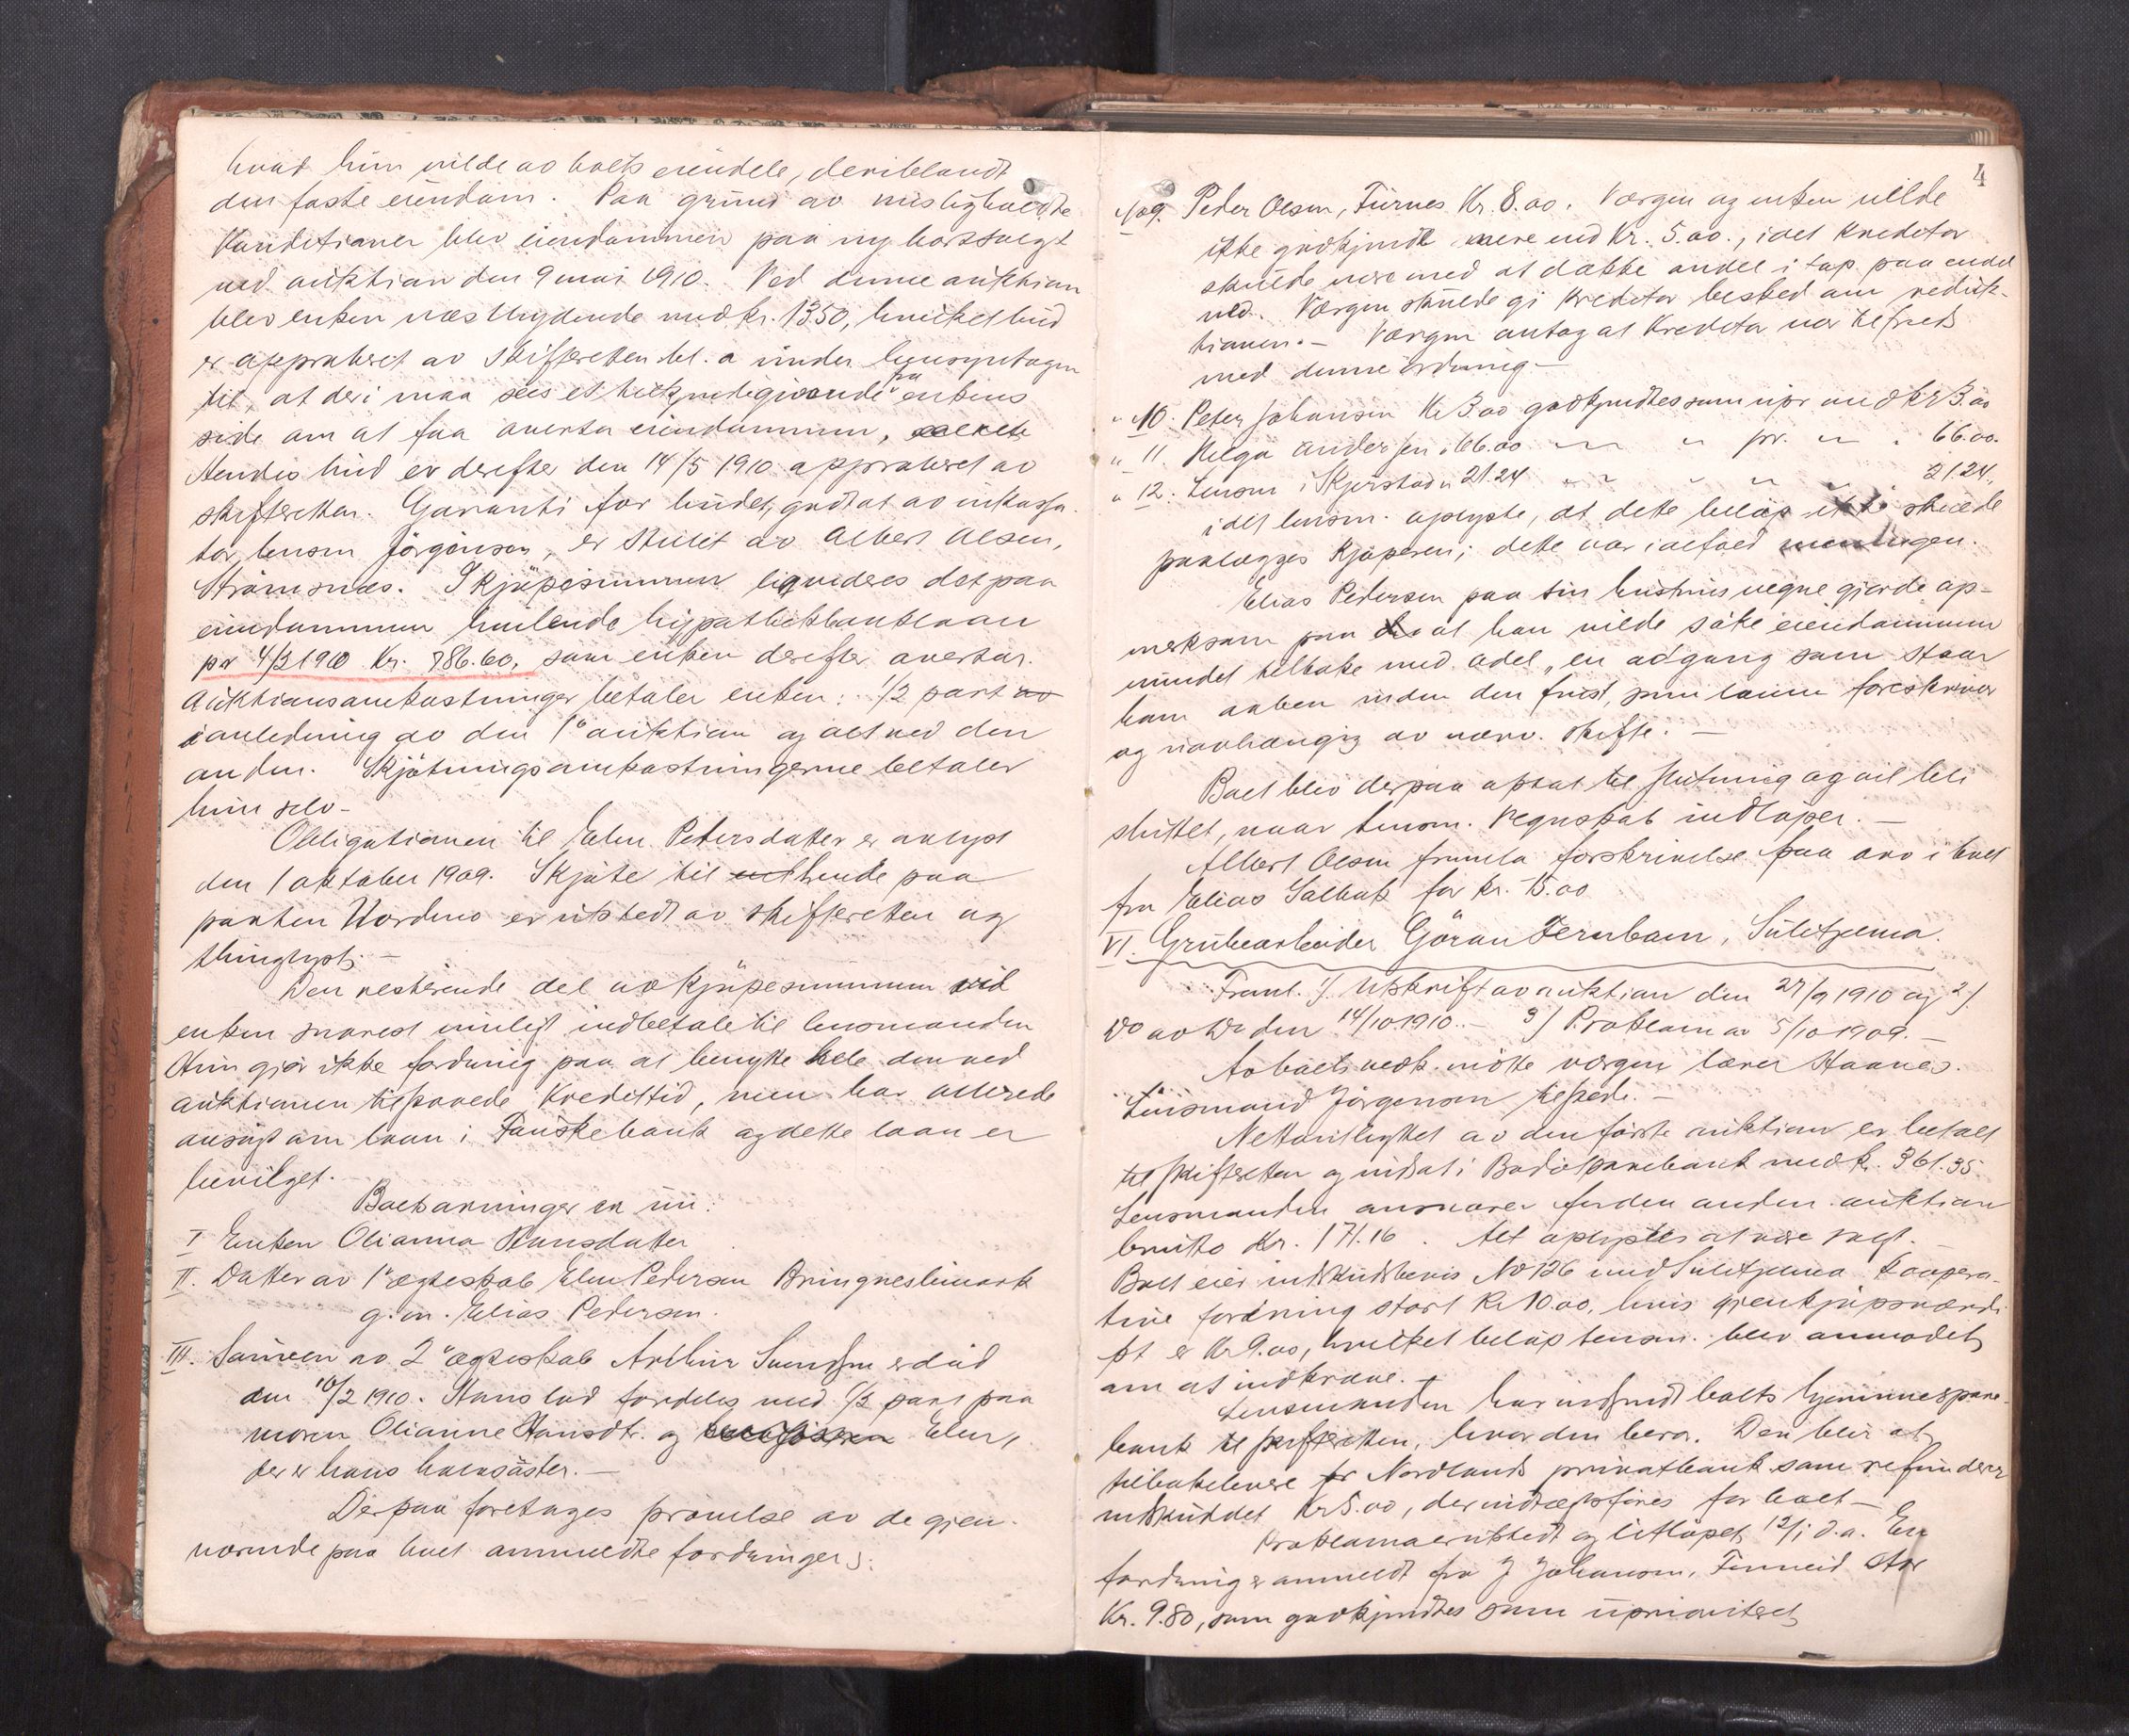 hvad hun vilde av boets eiendele, deriblandt
den faste eiendom. Paa grund av misligholdte
Konditioner blev eiendommen paa ny bortsolgt
ved auktion den 9 mai 1910. Ved denne auktion
blev enken næstbydende med kr. 1350, hvilket bud
er approberet av skifteretten bl. a under hensyntagen
til, at der i maa sees et tilkjendegivende fra enkens
side om at faa overta eiendommen,
Hendes bud er derefter den 14/5 1910 approberet av
skifteretten. Garanti for budet, godtat av inkassa-
tor, lensm Jørgensen, er stillet av Albert Olsen,
Strømsnes. I kjøpesummen liqvideres det paa
eiendommen hvilende hypothekbanklaan
pr 4/3 1910 Kr. 786.60, som enken derefter overtar.
Auktionsomkostninger betaler enken: 1/2 part av
i anledning av den 1ste auktion og alt ved den
anden. Skjøtningsomkostningerne betaler
hun selv -
Obligationen til Elen Petersdatter er avlyst
den 1 oktober 1909. Skjøte til hende paa
parten Nordmo er utstedt av skifteretten og
thinglyst. -
Den resterende del av kjøpesummen vil
enken snarest muligt indbetale til lensmanden
Hun gjør ikke fordring paa at benytte hele den ved
auktionen tilstaaede Kredittid, men har allerede
ansøgt om laan i Fauskebank og dette laan er
bevilget.
Boets arvinger er nu:
I Enken Olianna Hansdatter
II. Datter av 1ste ægteskab Elen Pedersen Bringneslimark
g. m. Elias Pedersen.
III. Sønnen av 2det ægteskab Arthur Svendsen er død
den 10/2 1910. Hans lod fordeles med 1/2 part paa
moren Olianne Hansdtr. og Elen,
der er hans halvsøster. -
Derpaa foretages prøvelse av de gjen-
værende paa boet anmeldte fordringer:
4
No 9. Peder Olsen, Furnes Kr. 8.00. Værgen og enken vilde
ikke godkjende mere end Kr. 5.00., idet kreditor
skulde være med at dække andel i tap paa endel
ved. Værgen skulde gi kreditor besked om reduk-
tionen. - Værgen antog at kreditor var tilfreds
med denne ordning -
" 10. Peter Johansen Kr 3.00 godkjendtes som upr med kr 3.00
" 11 Helga Andersen " 66.00 " " pr. " " 66.00.
" 12. Lensm i Skjerstad " 21.24 " " " " " 21.24,
idet lensm. oplyste, at dette beløp ikke skulde
paalægges kjøperen; dette var ialfald meningen.
Elias Pedersen paa sin hustrus vegne gjorde op-
merksom paa at han vilde søke eiendommen
vundet tilbake med odel, en adgang som staar
ham aaben inden den frist, som loven foreskriver
og uavhængig av nærv. skifte. -
Boet blev derpaa optat til slutning og vil bli
sluttet, naar lensm. Regnskab indløper. -
Albert Olsen fremla forskrivelse paa arv i boet
fra Elias Salbak for kr. 15.00
VI. Grubearbeider Göran Fernbam, Sulitjelma.
Freml. 1/ Utskrift av auktion den 27/9 1910 og 2/
Do av Do den 14/10 1910. - 3/ Proklama av 5/10 1909. -
Av boets vedk. møtte værgen lærer Haanes.
Lensmand Jørgensen tilstede. -
Nettoutbyttet av den første auktion er betalt
til skifteretten og indsat i Bodø sparebank med kr. 361.35.
Lensmanden ansvarer for den anden auktion
brutto Kr. 171.16. Alt oplystes at være solgt. -
Boet eier indskudsbevis No 126 med Sulitjelma koopera-
tive forening stort Kr 10.00, hvis gjenkjøpsværdi
pt er Kr 9.00, hvilket beløp lensm. blev anmodet
om at indkræve. -
Lensmanden har indsendt boets hjemmespare-
bank til skifteretten, hvor den bero. Den blir at
tilbakelevere til Nordlands privatbank som refunderer
indskuddet Kr 5.00, der indtægtsføres for boet -
Proklama er utstedt og utløpet 12/1 d.a. En
fordring er anmeldt fra J Johansen, Finneid stor
Kr. 9.80, som godkjendtes som uprioritert,